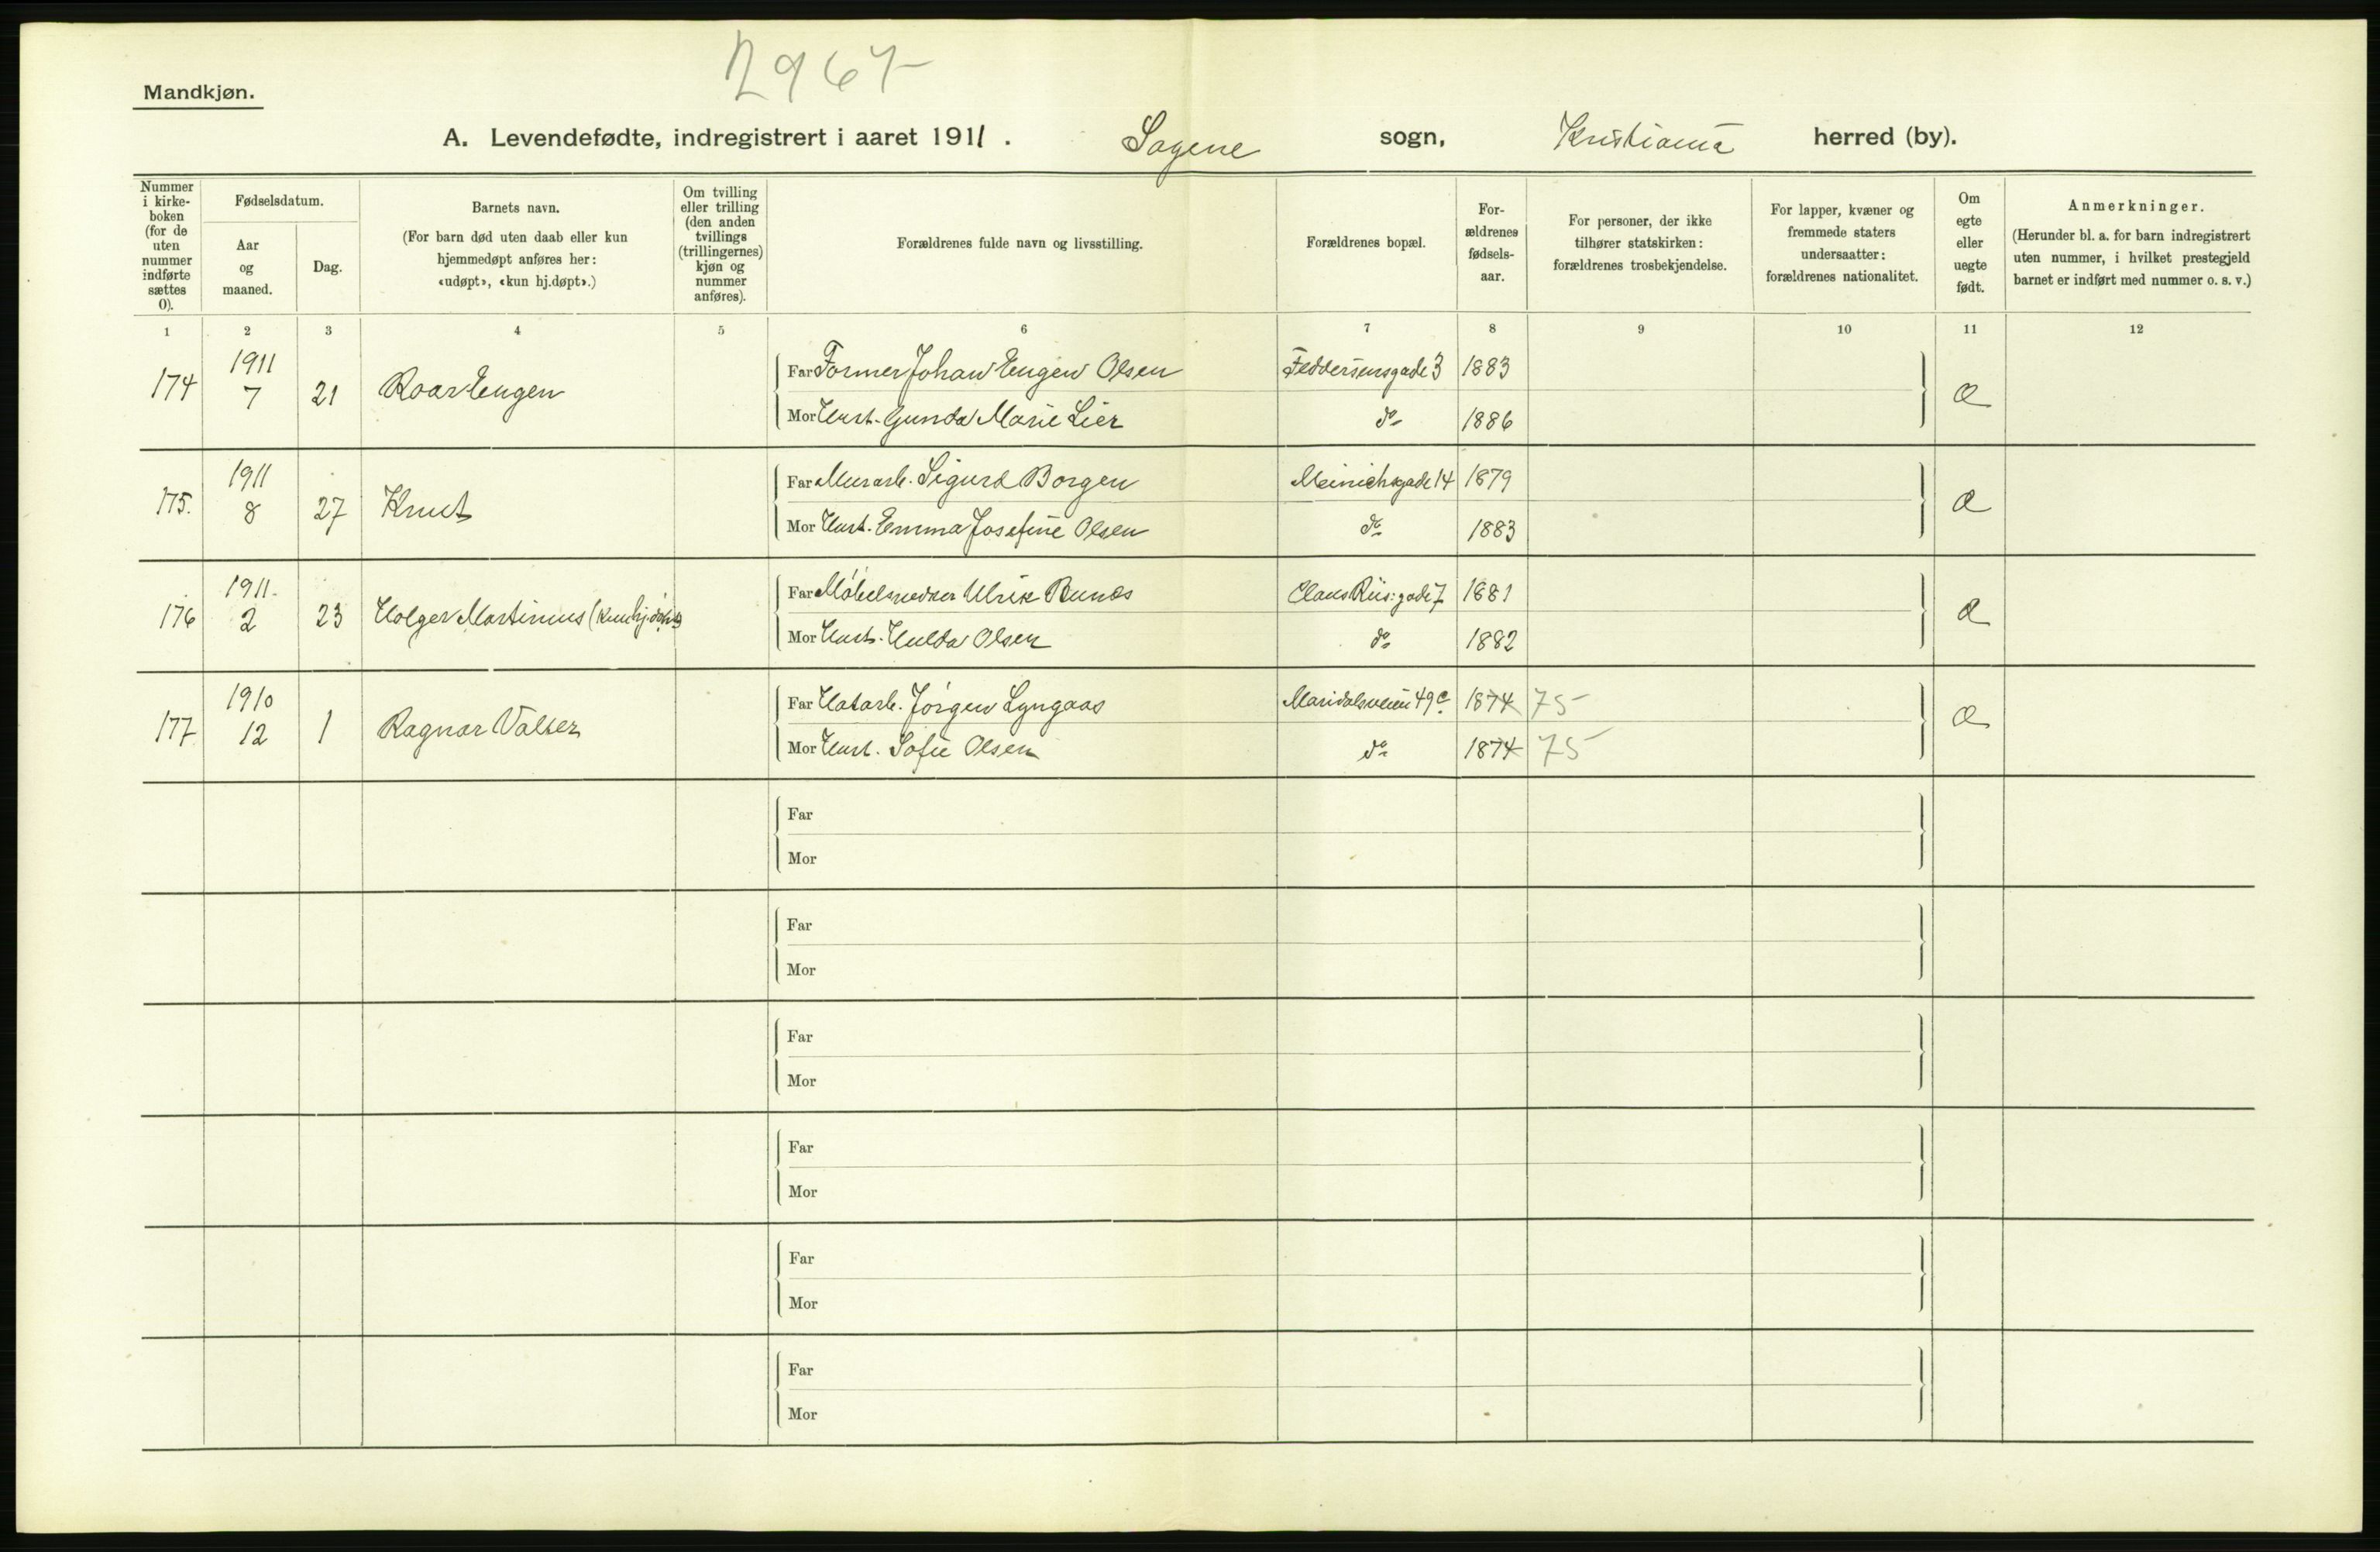 2967
Mandkjøn.
A. Levendefødte, indregistrert i aaret 1911. Sagene sogn, Kristiania herred (by).
Nummer i kirke-boken (for de uten nummer indførte sættes 0).
Fødselsdatum.
Aar og maaned.
Dag.
Barnets navn.
(For barn død uten daab eller kun hjemmedøpt anføres her: «udøpt», «kun hj.døpt».)
Om tvilling eller trilling (den anden tvillings (trillingernes) kjøn og nummer anføres).
Forældrenes fulde navn og livsstilling.
Forældrenes bopæl.
For-ældrenes fødsels-aar.
For personer, der ikke tilhører statskirken: forældrenes trosbekjendelse.
For lapper, kvæner og fremmede staters undersaatter: forældrenes nationalitet.
Om egte eller uegte født.
Anmerkninger.
(Herunder bl. a. for barn indregistrert uten nummer, i hvilket prestegjeld barnet er indført med nummer o. s. v.)
1 2 3 4 5 6 7 8 9 10 11 12
174 1911 7 21 Roar Eugen
Far Former Johan Eugen Olsen Feddersensgade 3 1883
Mor Hust. Gunda Marie Lier do 1886
175. 1911 8 27 Knut
Far Murarb. Sigurd Borgen Meinichsgade 14 1879
Mor Hust. Emma Josefine Olsen do 1883
176 1911. 2 23 Holger Martinius (kun hj.døbt)
Far Møbelsnedker Ulrik Bunæs Claus Riis: gade 7 1881
Mor Hust. Hulda Olsen do 1882
177 1910 12 1 Ragnar Valter
Far Hatarb. Jörgen Lyngaas Maridalsveien 49 c. 1874 75
Mor Hust. Sofie Olsen do 1874 75
Far
Mor
Far
Mor
Far
Mor
Far
Mor
Far
Mor
Far
Mor